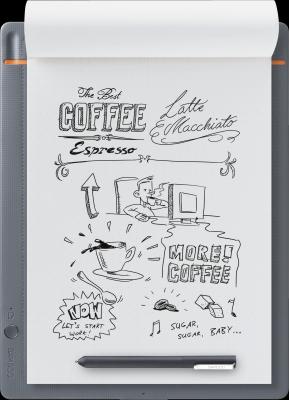 The Best
COFFEE
Latte
Macchiato
Espresso
MORE!
COFFEE
NOW
LET'S START
WORK!
SUGAR,
SUGAR, BABY...